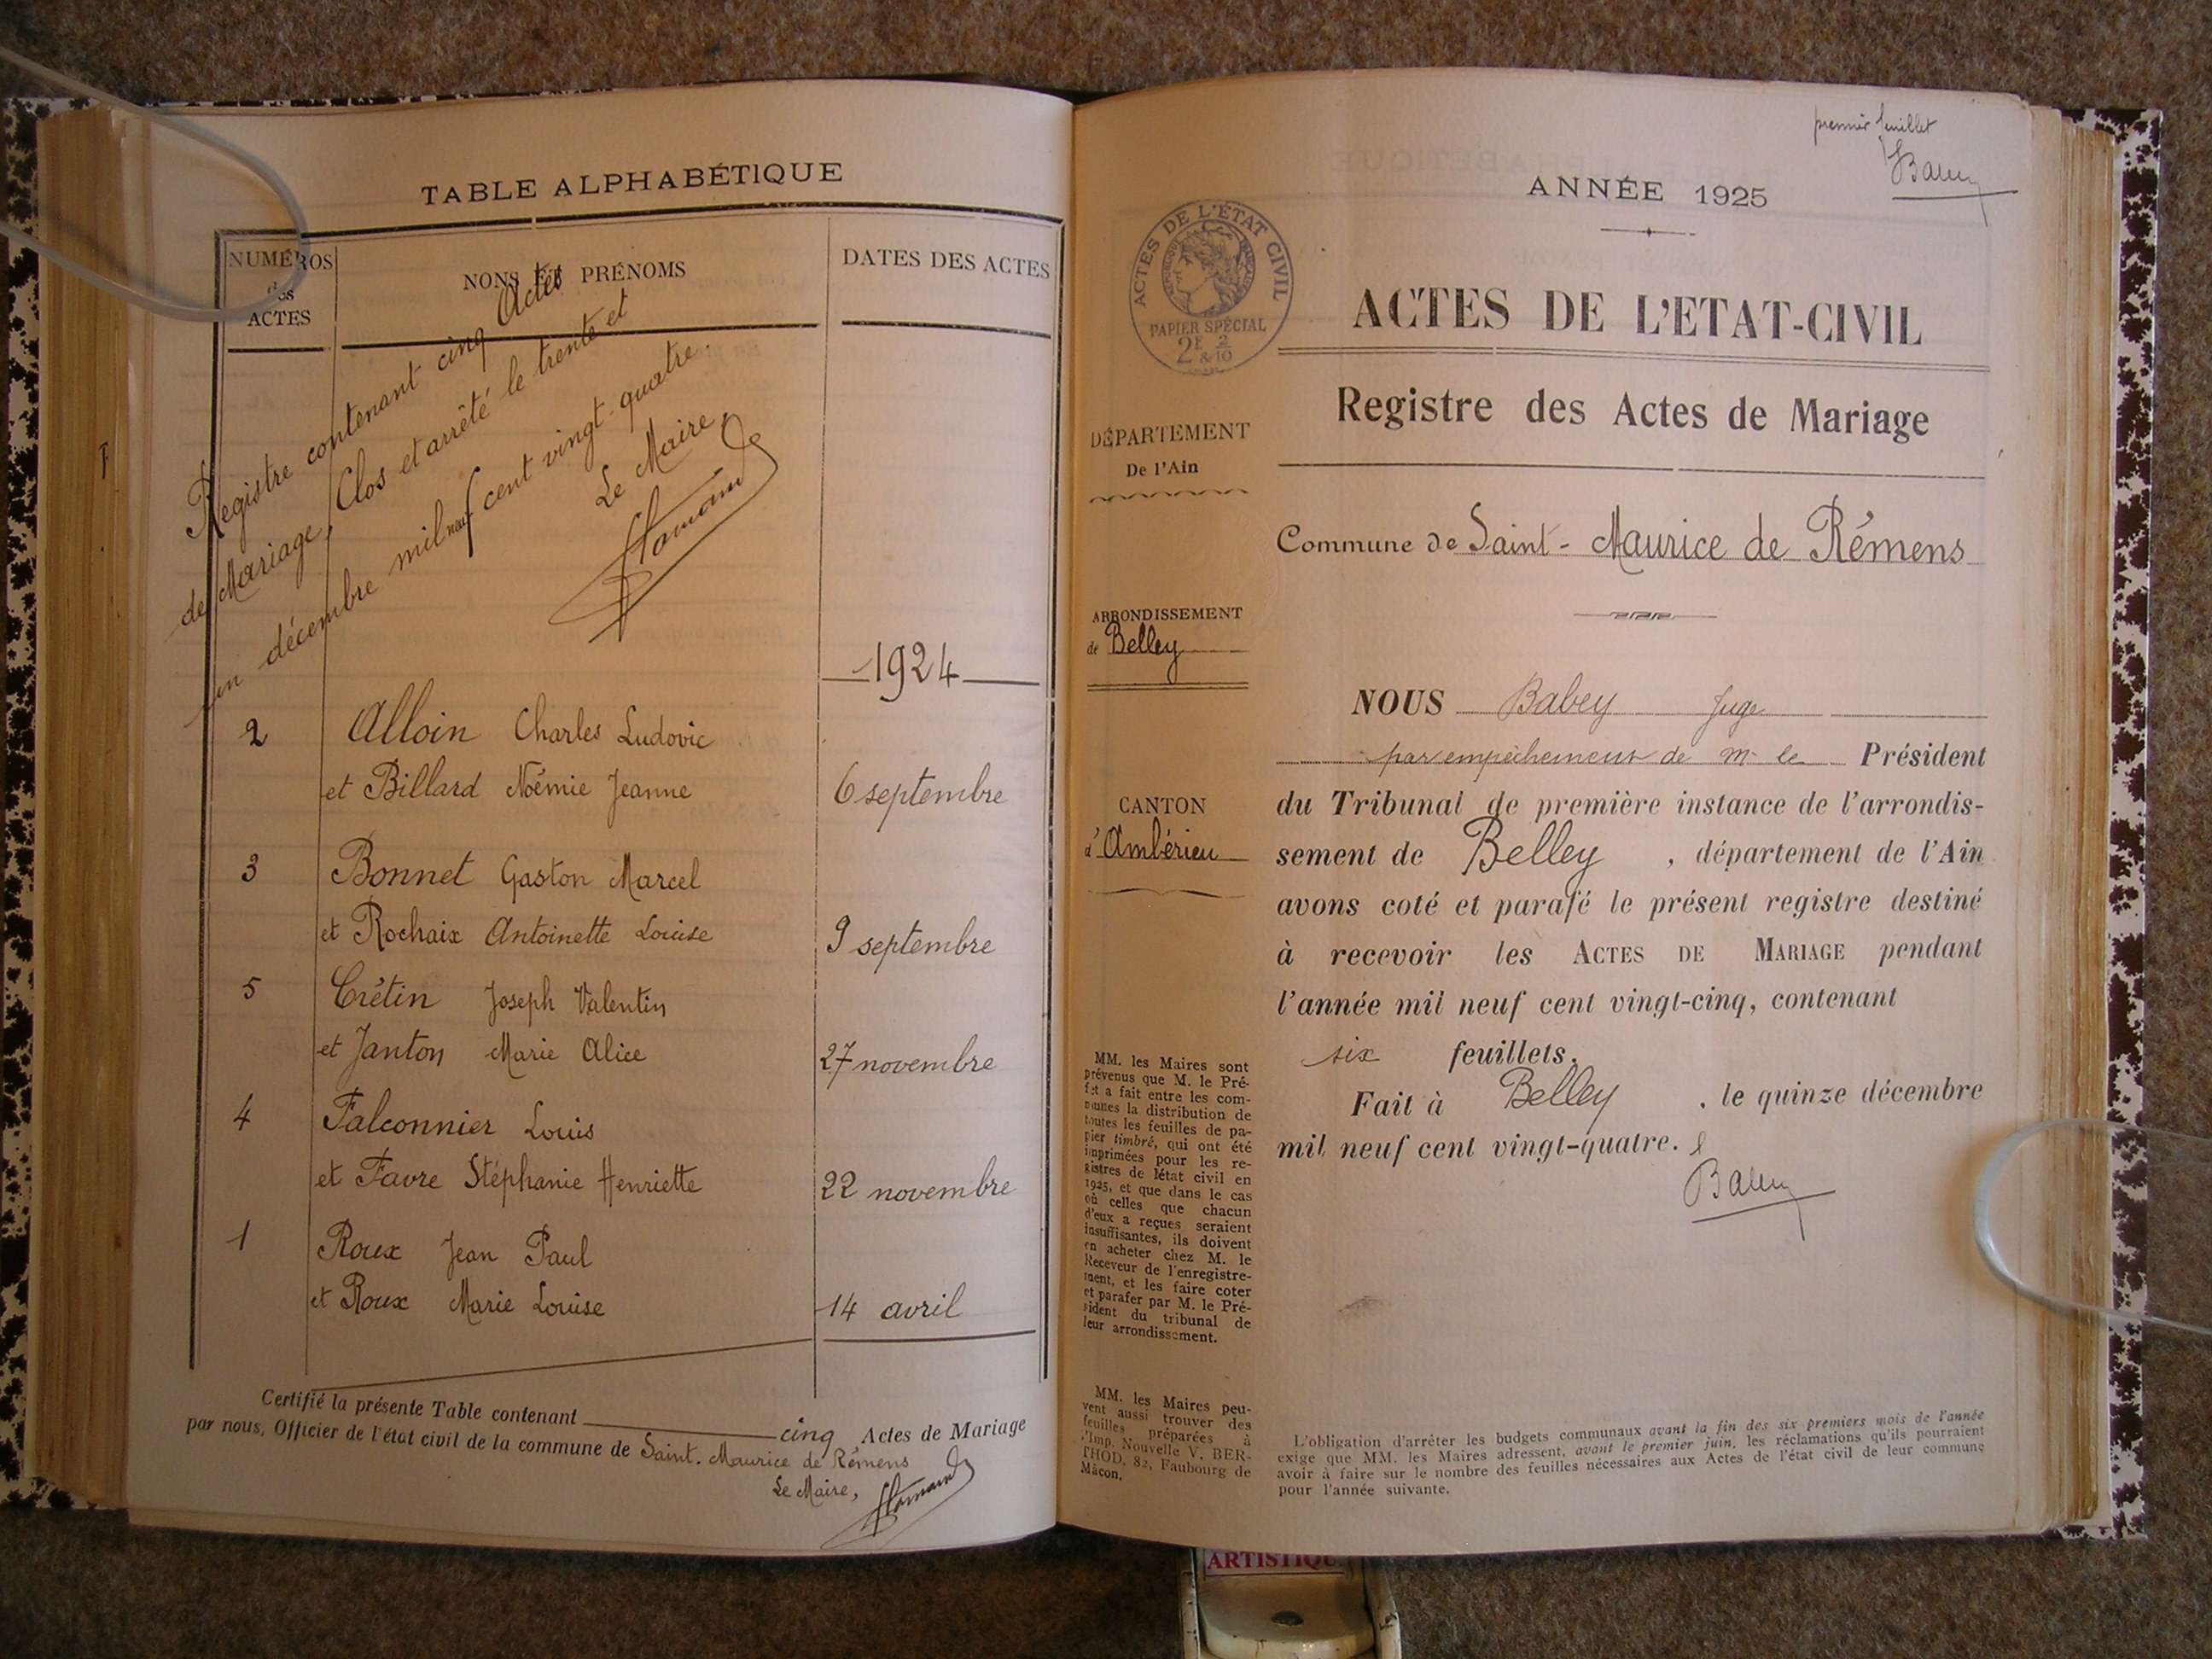 TABLE ALPHABÉTIQUE
NUMÉROS
des
ACTES
NONS ET PRÉNOMS
DATES DES ACTES
Registre contenant cinq Actes
de Mariage, Clos et arrêté le trente et
un décembre mil neuf cent vingt-quatre.
Le Maire,
1924
2 Alloin Charles Ludovic
et Billard Noémie Jeanne 6 septembre
3 Bonnet Gaston Marcel
et Rochaix Antoinette Louise 9 septembre
5 Crétin Joseph Valentin
et Janton Marie Alice 27 novembre
4 Falconnier Louis
et Favre Stéphanie Henriette 22 novembre
1 Roux Jean Paul
et Roux Marie Louise 14 avril
Certifié la présente Table contenant cinq Actes de Mariage
par nous, Officier de l'état civil de la commune de Saint-Maurice de Rémens
Le Maire,
premier feuillet
ANNÉE 1925
ACTES DE L'ÉTAT CIVIL
PAPIER SPÉCIAL
2F & 2/10
ACTES DE L'ETAT-CIVIL
Registre des Actes de Mariage
DÉPARTEMENT
De l'Ain
Commune de Saint-Maurice de Rémens
ARRONDISSEMENT
de Belley
CANTON
d'Ambérieu
MM. les Maires sont
prévenus que M. le Pré-
fet a fait entre les com-
munes la distribution de
toutes les feuilles de pa-
pier timbré, qui ont été
imprimées pour les re-
gistres de létat civil en
1925, et que dans le cas
où celles que chacun
d'eux a reçues seraient
insuffisantes, ils doivent
en acheter chez M. le
Receveur de l'enregistre-
ment, et les faire coter
et parafer par M. le Pré-
sident du tribunal de
leur arrondissement.
MM. les Maires peu-
vent aussi trouver des
feuilles préparées à
l'Imp. Nouvelle V. BER-
THOD, 82, Faubourg de
Mâcon.
NOUS Babey Juge
par empêchement de M. le Président
du Tribunal de première instance de l'arrondis-
sement de Belley, département de l'Ain
avons coté et parafé le présent registre destiné
à recevoir les ACTES DE MARIAGE pendant
l'année mil neuf cent vingt-cinq, contenant
six feuillets.
Fait à Belley, le quinze décembre
mil neuf cent vingt-quatre.
L'obligation d'arrêter les budgets communaux avant la fin des six premiers mois de l'année
exige que MM. les Maires adressent, avant le premier juin, les réclamations qu'ils pourraient
avoir à faire sur le nombre des feuilles nécessaires aux Actes de l'état civil de leur commune
pour l'année suivante.